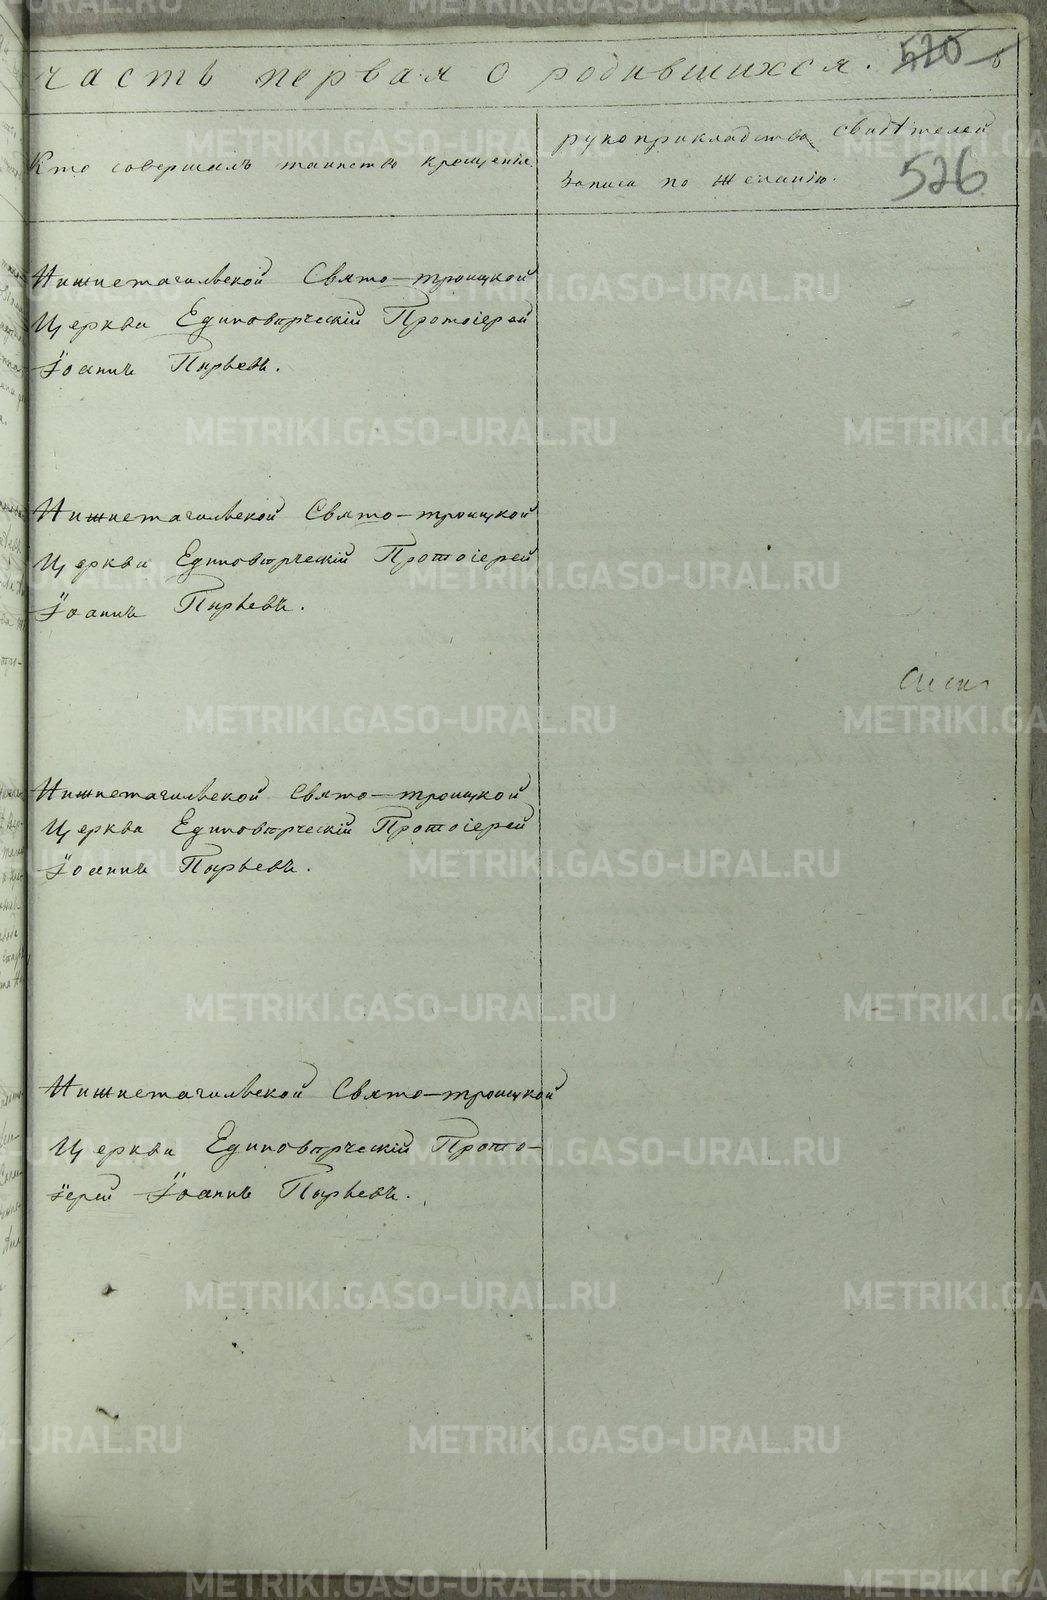 часть первая о родившихся. 520 в
Кто совершалъ таинство крещенія
рукоприкладство свидѣтелей
записи по желанію. 526
Нижнетагильской Свято-троицкой
Церкви Единовѣрческій Протоіерей
Іоаннъ Пырьевъ.
Нижнетагильской Свято-троицкой
Церкви Единовѣрческій Протоіерей
Іоаннъ Пырьевъ.
Нижнетагильской Свято-троицкой
Церкви Единовѣрческій Протоіерей
Іоаннъ Пырьевъ.
Нижнетагильской Свято-троицкой
Церкви Единовѣрческій Прото-
іерей Іоаннъ Пырьевъ.
METRIKI.GASO-URAL.RU